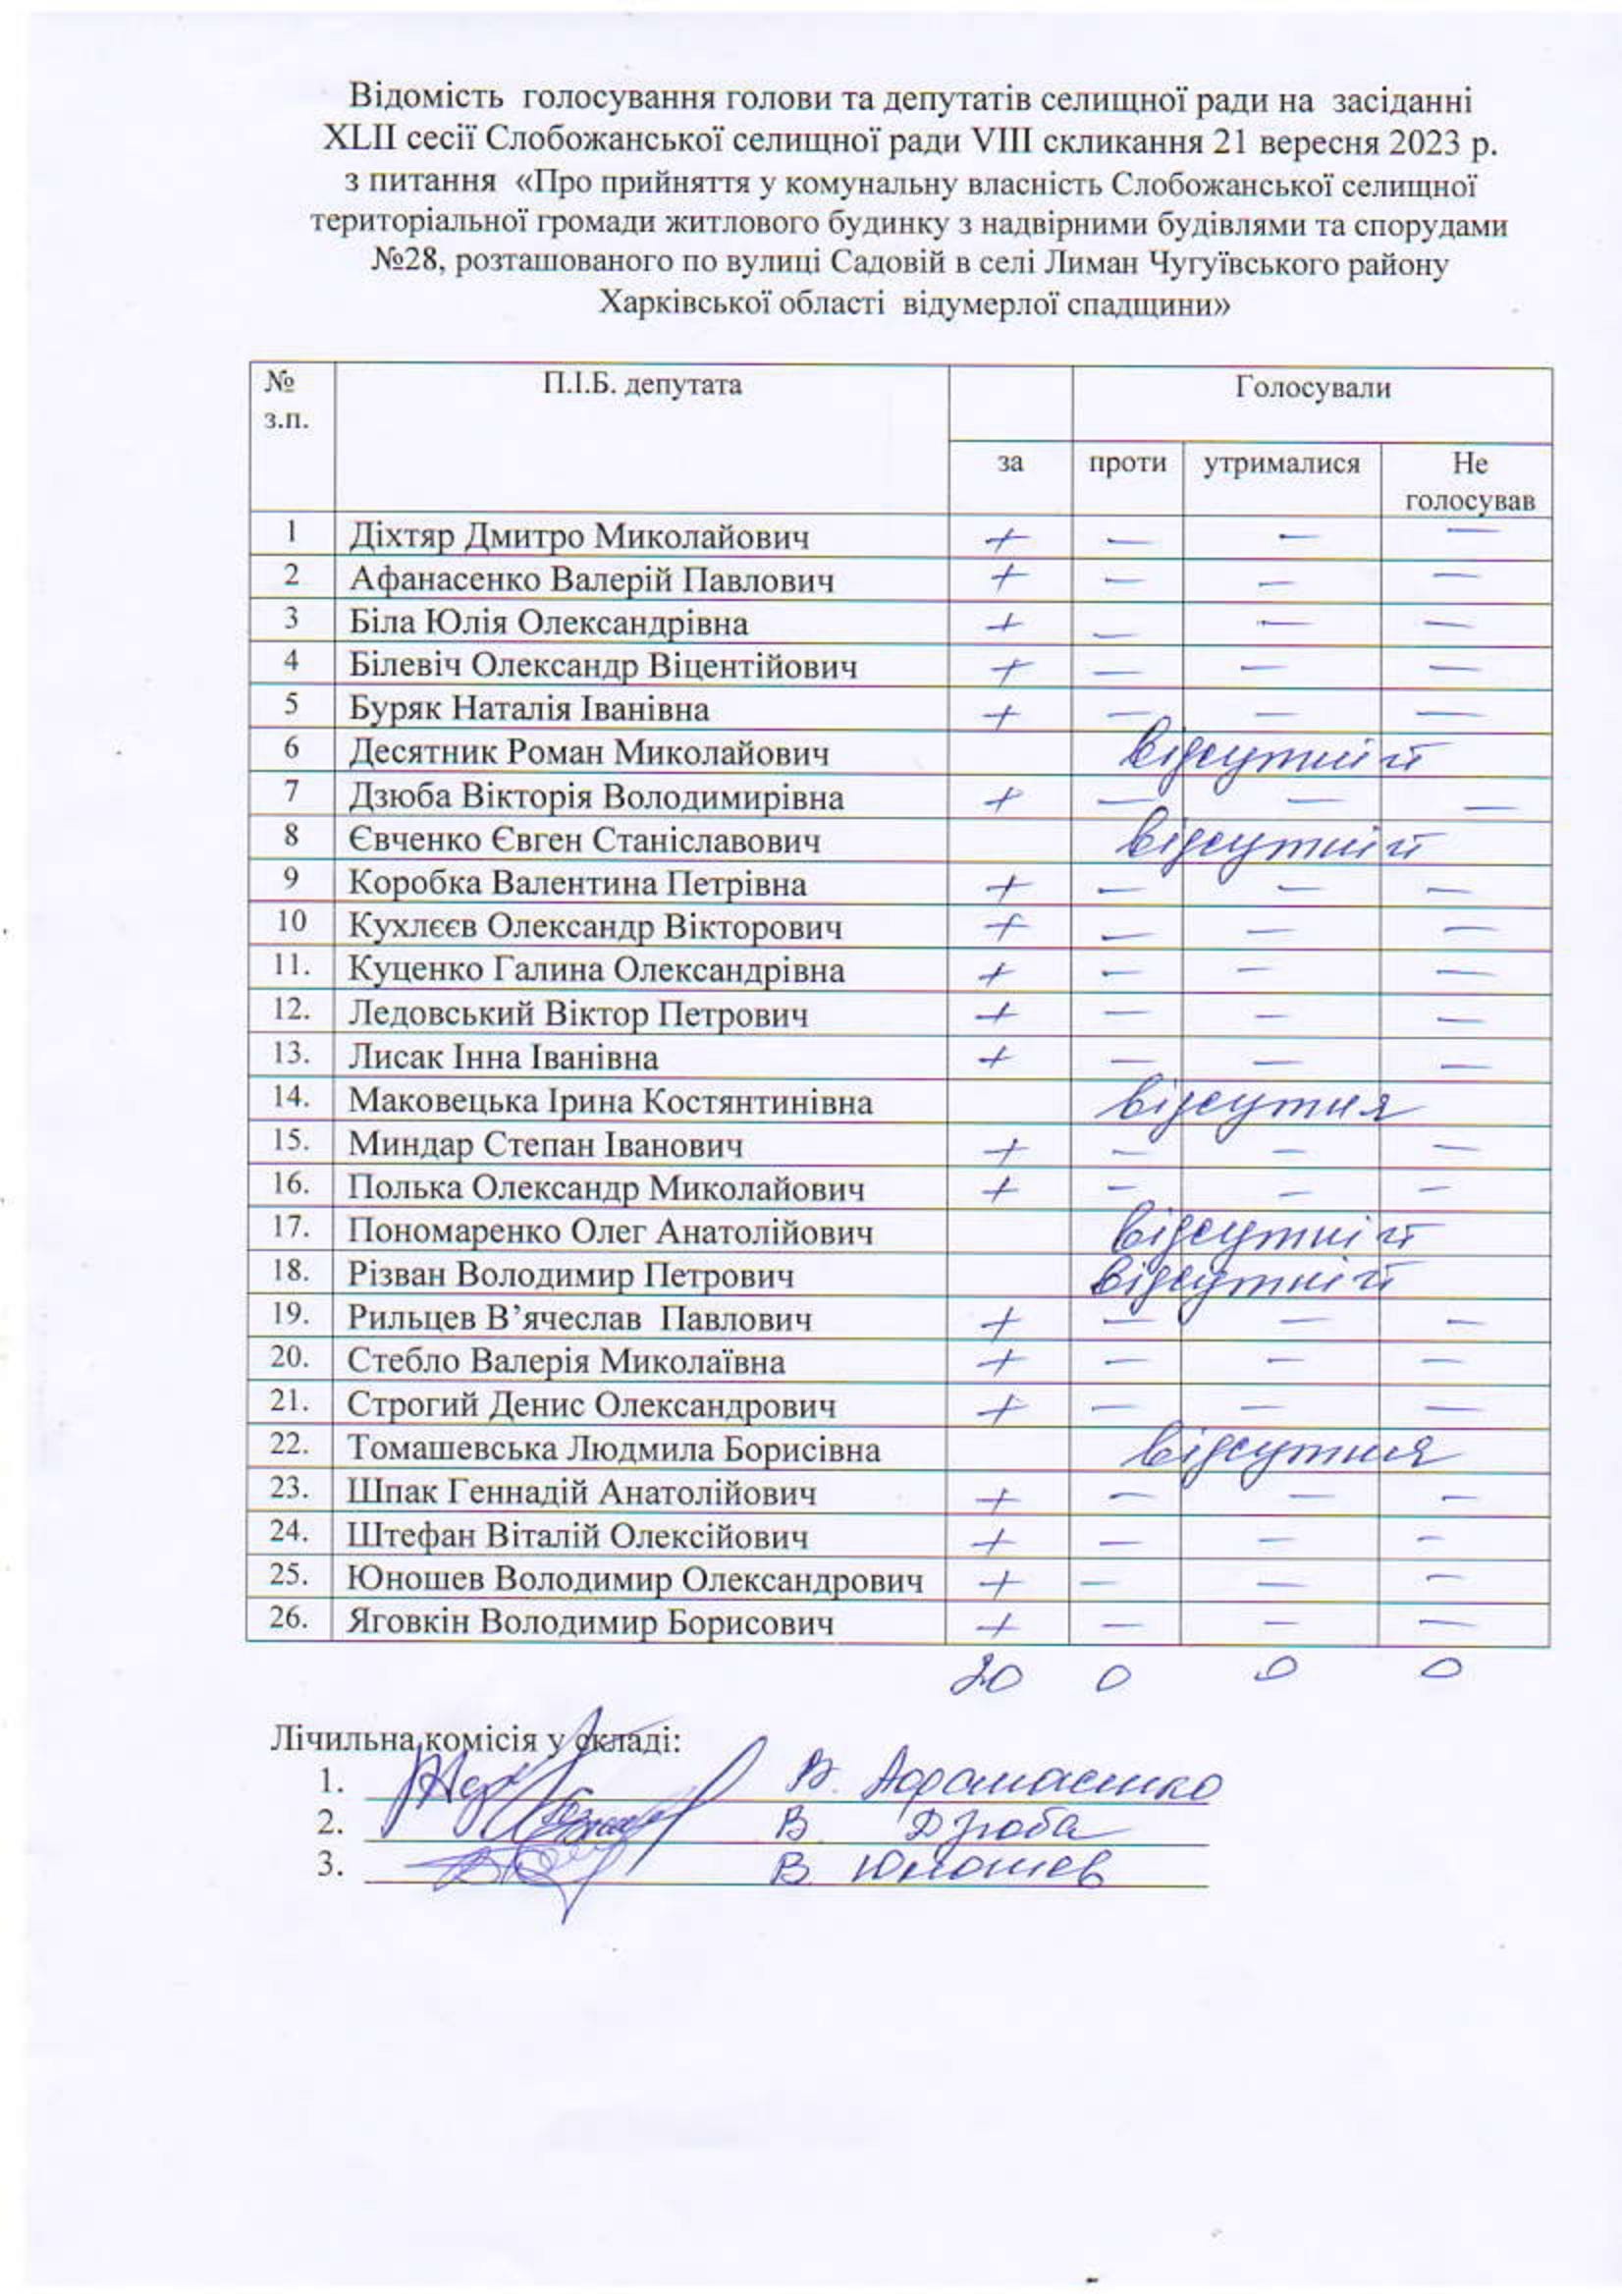 Відомість голосування голови та депутатів селищної ради на засіданні
XLII сесії Слобожанської селищної ради VIII скликання 21 вересня 2023 р.
з питання «Про прийняття у комунальну власність Слобожанської селищної
територіальної громади житлового будинку з надвірними будівлями та спорудами
№28, розташованого по вулиці Садовій в селі Лиман Чугуївського району
Харківської області відумерлої спадщини»
№ П.І.Б. депутата Голосували
з.п.
за проти утрималися Не
голосував
1 Діхтяр Дмитро Миколайович + — — —
2 Афанасенко Валерій Павлович + — — —
3 Біла Юлія Олександрівна + — — —
4 Білевіч Олександр Віцентійович + — — —
5 Буряк Наталія Іванівна + — — —
6 Десятник Роман Миколайович відсутній
7 Дзюба Вікторія Володимирівна + — — —
8 Євченко Євген Станіславович відсутній
9 Коробка Валентина Петрівна + — — —
10 Кухлєєв Олександр Вікторович + — — —
11. Куценко Галина Олександрівна + — — —
12. Ледовський Віктор Петрович + — — —
13. Лисак Інна Іванівна + — — —
14. Маковецька Ірина Костянтинівна відсутня
15. Миндар Степан Іванович + — — —
16. Полька Олександр Миколайович + — — —
17. Пономаренко Олег Анатолійович відсутній
18. Різван Володимир Петрович відсутній
19. Рильцев В’ячеслав Павлович + — — —
20. Стебло Валерія Миколаївна + — — —
21. Строгий Денис Олександрович + — — —
22. Томашевська Людмила Борисівна відсутня
23. Шпак Геннадій Анатолійович + — — —
24. Штефан Віталій Олексійович + — — —
25. Юношев Володимир Олександрович + — — —
26. Яговкін Володимир Борисович + — — —
20 0 0 0
Лічильна комісія у складі:
1. В. Афанасенко
2. В. Дзюба
3. В. Юношев